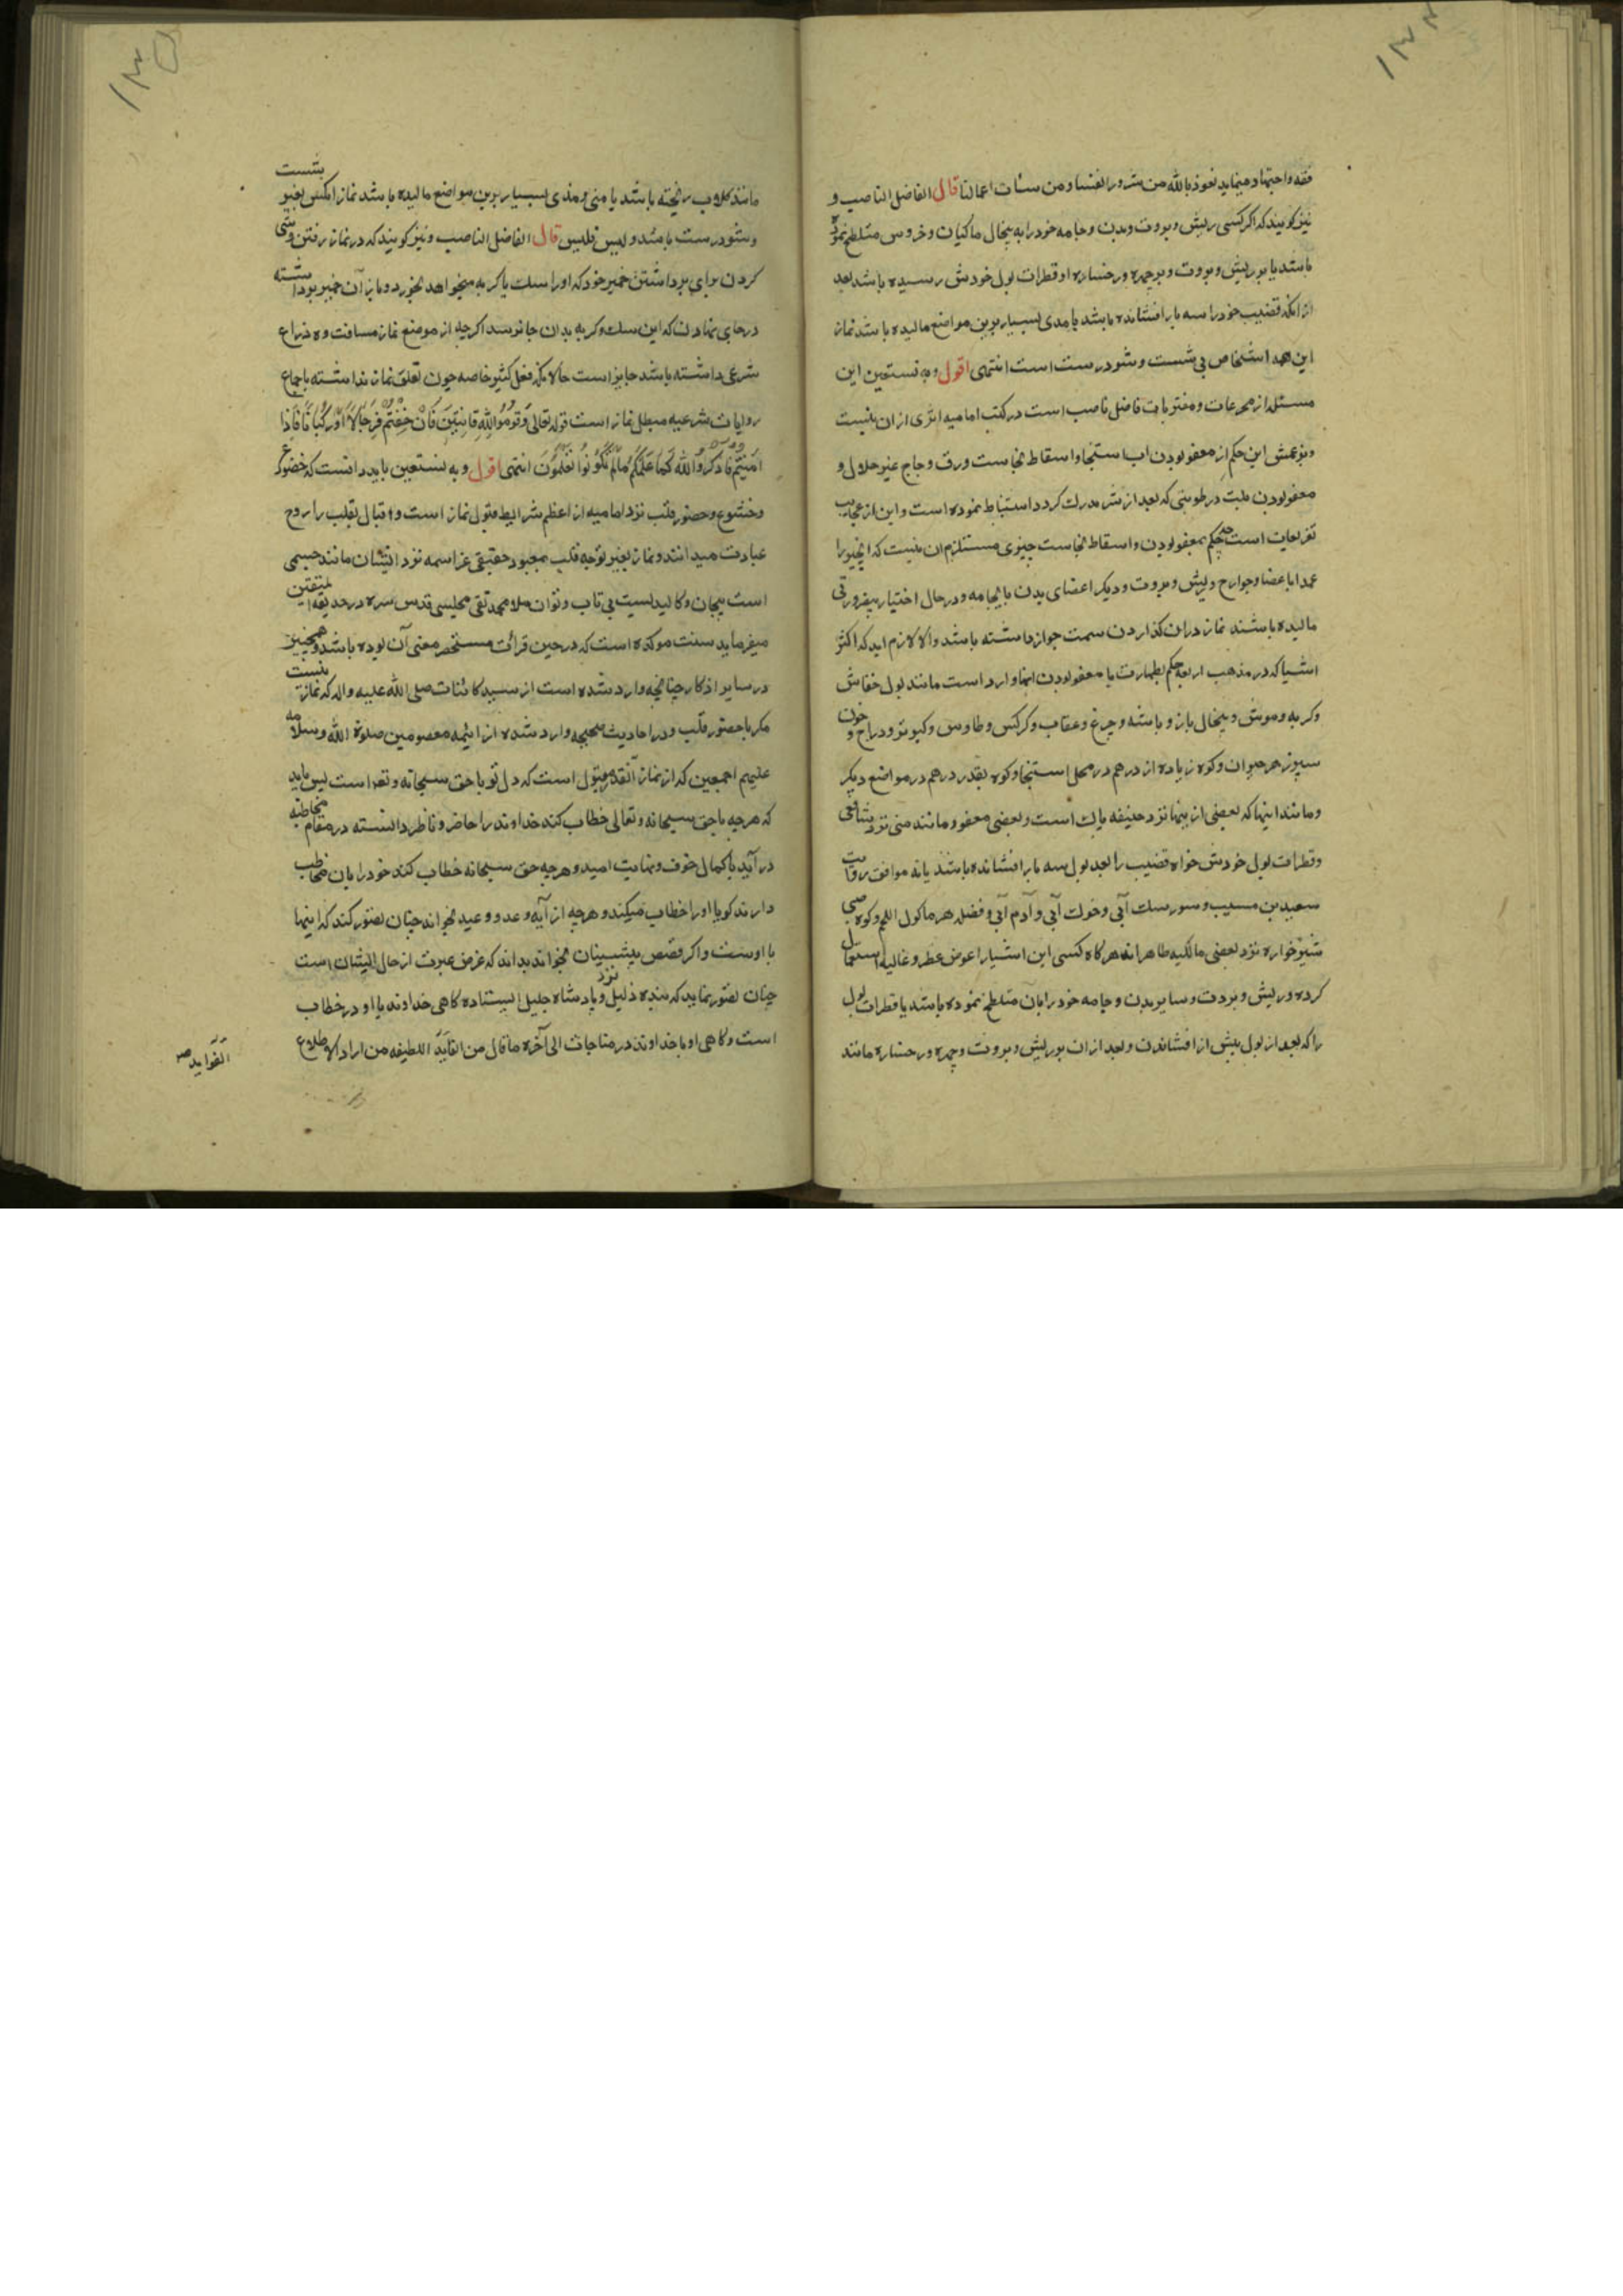 ۱۳۴
فقه واجتهاد مینماید نعوذ بالله من شرور انفسنا ومن سیئات اعمالنا قال الفاضل الناصب و
نیز گویند که اگر کسی ریش و بروت و بدن و جامه خود را به پیخال ماکیان و خروس متلطخ نموده
باشد یا بر ریش و بروت و بر چهره و رخساره او قطرات بول خودش رسیده باشد بعد
از انکه قضیب خود را سه بار افشانده باشد یا مذی بسیار برین مواضع مالیده باشد نماز
این همه اشخاص بی شست و شو درست است انتهی اقول وبه نستعین این
مسئله از مخترعات و مفتریات فاضل ناصب است در کتب امامیه اثری ازان نیست
وبزعمش این حکم از معفو بودن اب استنجا واسقاط نجاست ورق دجاج غیر جلال و
معفو بودن بلت در طوبتی که بعد از شر مدرک گردد استنباط نموده است و این از عجایب
تفریعات است چه حکم بمعفو بودن و اسقاط نجاست چیزی مستلزم ان نیست که انچیز را
عمدا باعضا وجوارح و ریش و بروت و دیگر اعضای بدن یا بجامه و در حال اختیار بیضرورتی
مالیده باشند نماز دران گذاردن سمت جواز داشته باشد والا لازم اید که اکثر
اشیا که در مذهب اربعه حکم بطهارت یا معفو بودن انها وارد است مانند بول خفاش
و گربه و موش و پیخال باز و باشه و چرغ و عقاب و کرکس و طاوس و کبوتر و دراج و خون
سپرز هر حیوان و کوه زیاده از درهم در محل استنجا و کوه بقدر درهم در مواضع دیگر
و مانند اینها که بعضی از ینها نزد حنیفه پاک است و بعضی معفو و مانند منی نزد شافعی
و قطرات بول خودش خواه قضیب را بعد بول سه بار افشانده باشند یا نه موافق روایت
سعید بن مسیب و سور سگ آبی و خوک آبی و آدم آبی و فضله هر ماکول اللحم و کوه صبی
شیرخواره نزد بعضی مالکیه طاهر اند هرگاه کسی این اشیا را عوض عطر و غالیه استعمال
کرده و ریش و بروت و سایر بدن و جامه خود را بآن متلطخ نموده باشد یا قطرات بول
را که بعد از بول پیش از افشاندن و بعد از ان بر ریش و بروت و چهره و رخساره مانند
۱۳۵
مانند گلاب ریخته باشد یا منی و مذی بسیار برین مواضع مالیده باشد نماز انکس بغیر شست
و شو درست باشد و لیس فلیس قال الفاضل الناصب و نیز گویند که در نماز رفتن و سعی
کردن برای برداشتن خمیر خود که او را سگ یا گربه میخواهد بخورد و باز آن خمیر برداشته
در جای نهادن که این سگ و گربه بدان جا نرسد اگرچه از موضع نماز مسافت ده ذراع
شرعی داشته باشد جایز است حالانکه فعل کثیر خاصه چون تعلق بنماز نداشته باجماع
روایات شرعیه مبطل نماز است قوله تعالی وَقُومُوا لِلّهِ قَانِتِینَ فَاِنْ خِفْتُمْ فَرِجَالًا اَوْ رُکْبَانًا فَاِذَا
اَمِنْتُمْ فَاذْکُرُوا اللهَ کَمَا عَلَّمَکُمْ مَا لَمْ تَکُونُوا تَعْلَمُونَ انتهی اقول و به نستعین باید دانست که خضوع
وخشوع وحضور قلب نزد امامیه از اعظم شرایط قبول نماز است و اقبال بقلب را روح
عبادت میدانند و نماز بغیر توجه قلب بمعبود حقیقی عز اسمه نزد ایشان مانند جسمی
است بیجان و کالبدیست بی تاب و توان ملا محمد تقی مجلسی قدس سره در حدیقه المتقین
میفرماید سنت موکده است که در حین قرائت مستحضر معنی آن بوده باشد و همچنین
در سایر اذکار چنانچه وارد شده است از سید کائنات صلی الله علیه و اله که نماز نیست
مگر با حضور قلب و در احادیث صحیحه وارد شده از ائیمه معصومین صلوة الله وسلامه
علیهم اجمعین که از نماز آنقدر مقبول است که دل تو با حق سبحانه و تعا است پس باید
که هر چه با حق سبحانه و تعالی خطاب کند خداوند را حاضر و ناظر دانسته در مقام مخاطبه
در آید با کمال خوف و نهایت امید و هر چه حق سبحانه خطاب کند خود را بان مخاطب
دارند گویا او را خطاب میکند و هر چه از آیه وعد و وعید بخواند چنان تصور کند که اینها
با اوست و اگر قصص پیشینیان بخواند بداند که غرض عبرت از حال ایشان است
چنان تصور نماید که بنده ذلیل نزد پادشاه جلیل ایستاده گاهی خداوند با او در خطاب
است و گاهی او با خداوند در مناجات الی آخره ما قال من الفاید اللطیفه من اراد الاطلاع
الفوایدصر